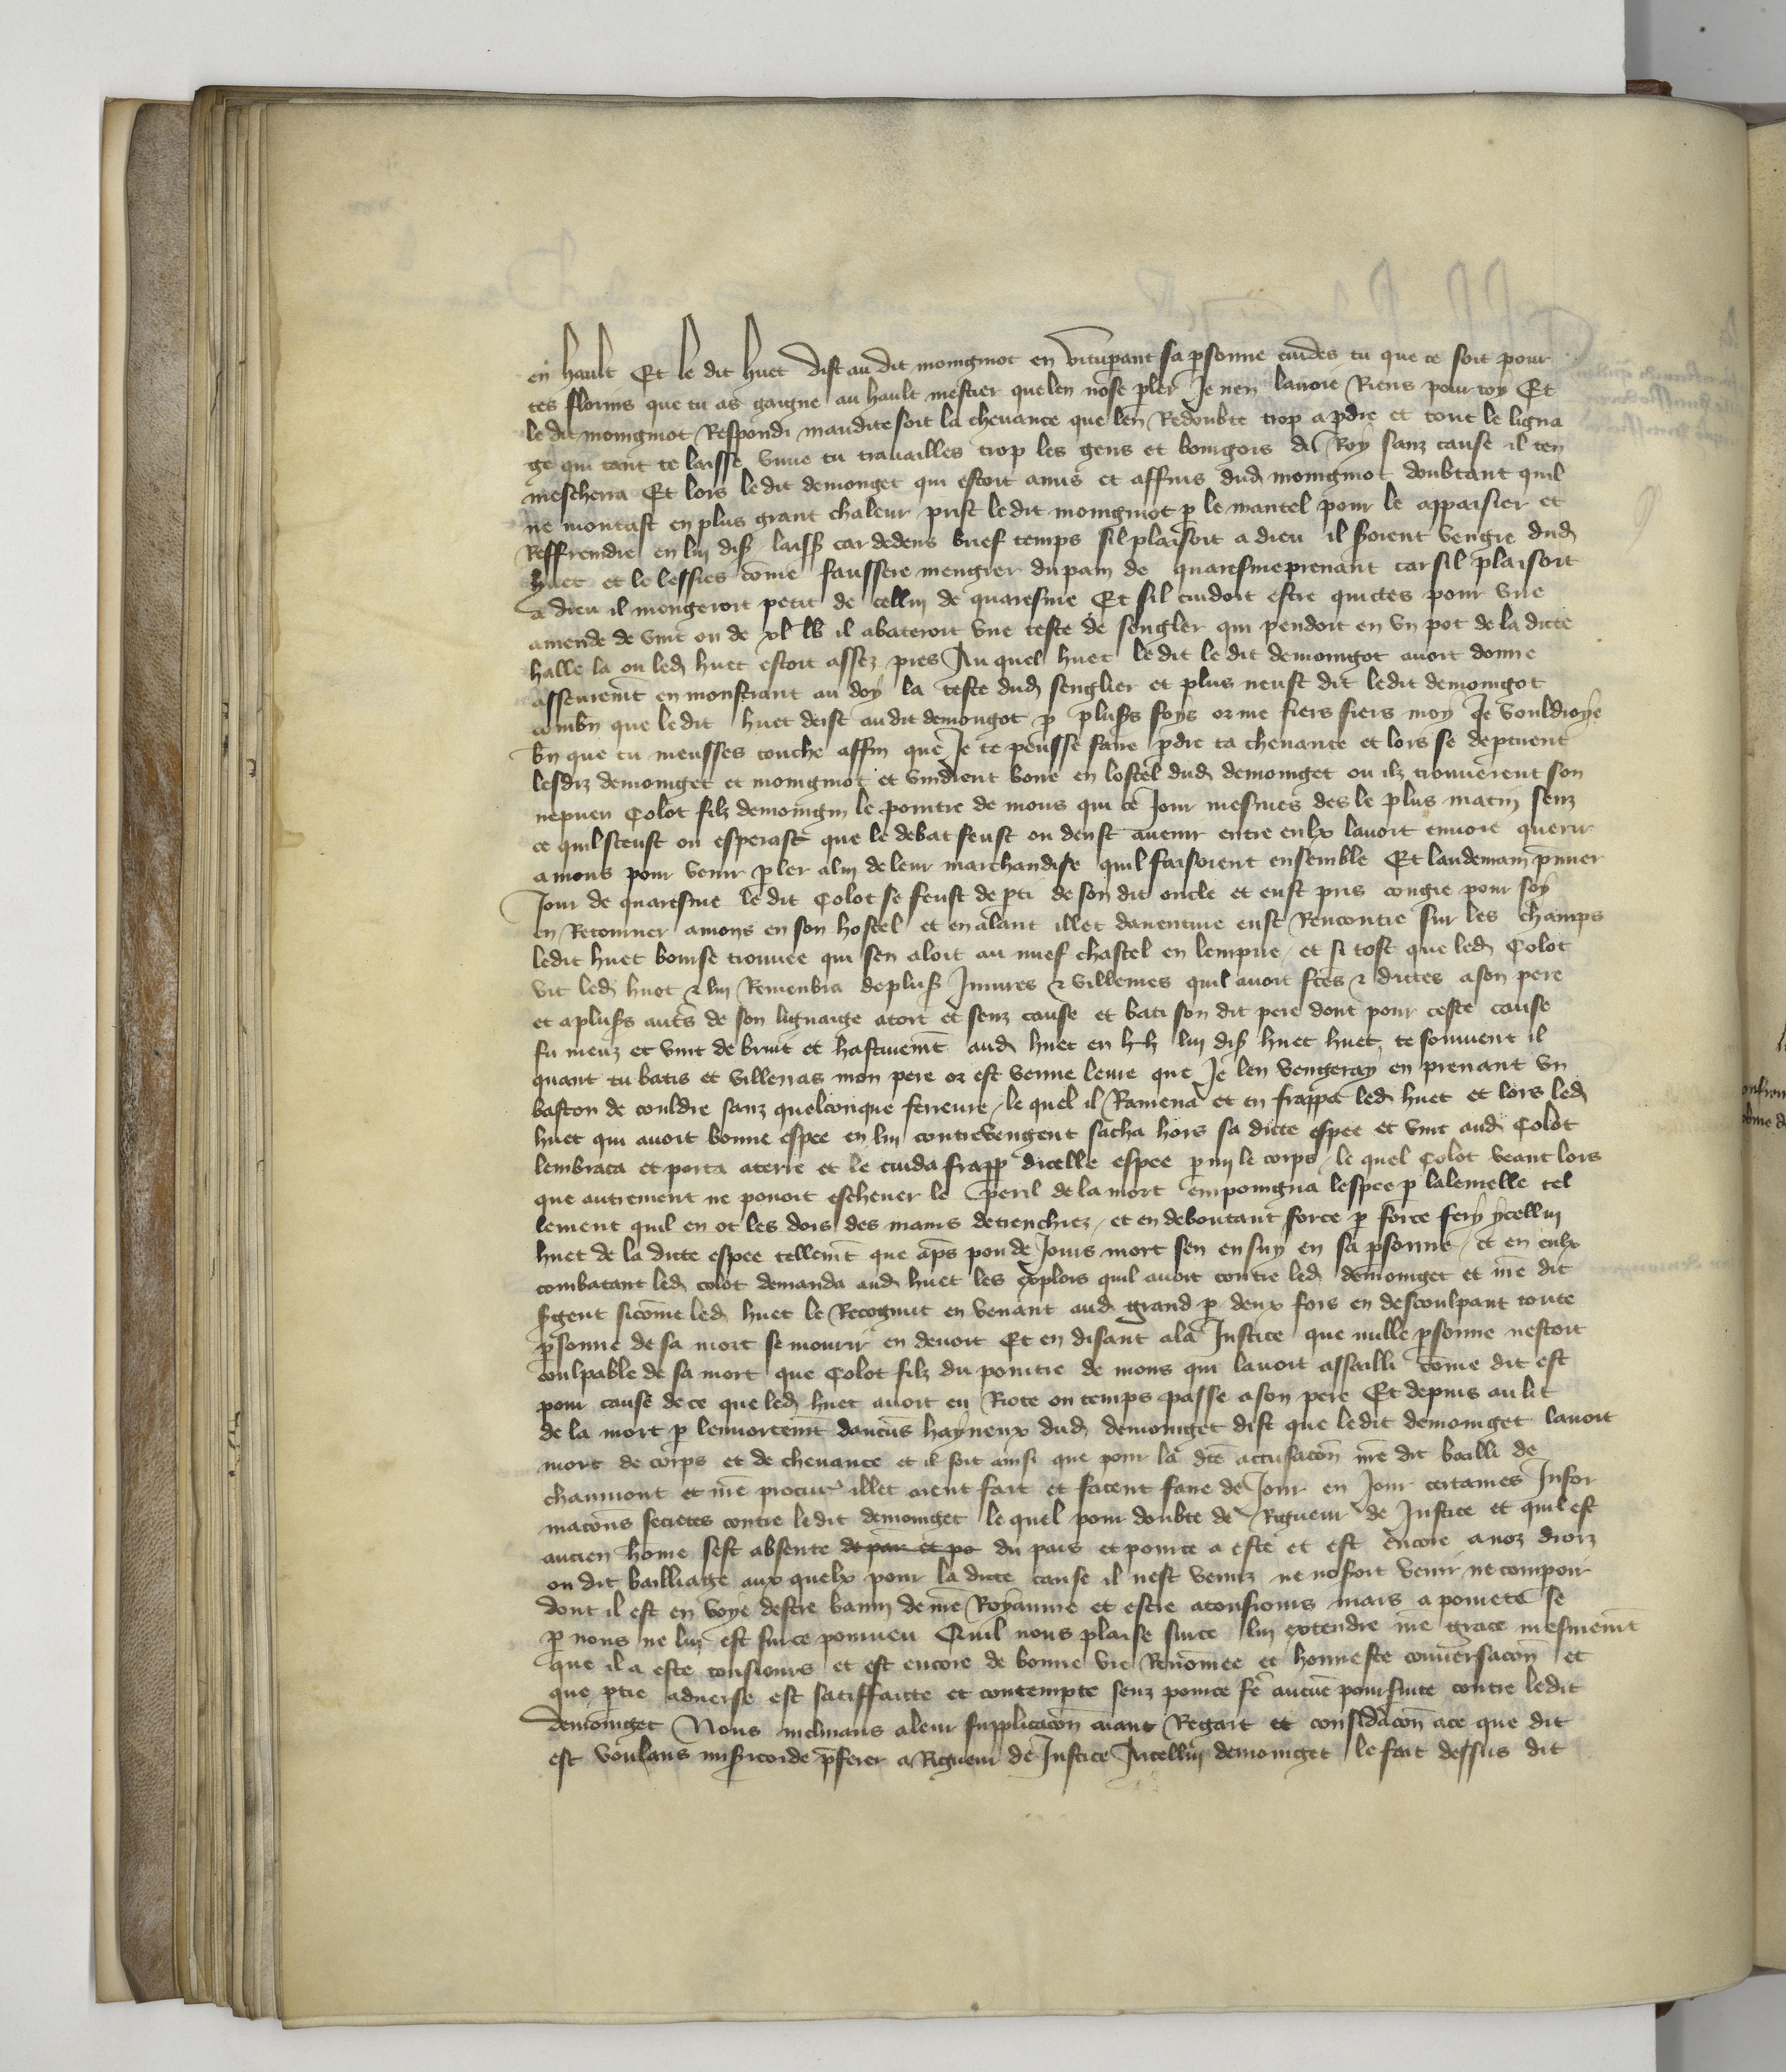 en hault Et le dit huet dist au dit moingmot en vitupant sa psonne cuides tu que ce soit pour
tes florins que tu as gaigne au hault mestier que len nose pler Je nen lauoie Riens pour toy Et
le dit moingmot Respondi maudite soit la cheuance que len Redoubte trop a pdre et tout le ligna
ge qui tant te laisse viure tu trauailles trop les gens et bourgois du Roy sanz cause il ten
mescherra Et lors ledit demonget qui estoit amis et affins dud moingmot doubtant quil
ne montast en plus grant chaleur prist ledit moingmot p le mantel pour le appaisier et
Reffrendre en lui dis laiss car dedens brief temps sil plaisoit a dieu il soient vengie dud
huet et le lessies come faussere mengier du pain de quaresmeprenant car sil plaisoit
a dieu il mengeroit petit de cellui de quaresme Et sil cuidoit estre quictes pour vne
amende de vint ou de xl lb il abateroit vne teste de sengler qui pendoit en vn pot de la dicte
halle la ou led huet estoit assez pres Au quel huet le dit le dit demoingot auoit donne
asseuremt en monstrant au doy la teste dud senglier et plus neust dit ledit demoingot
combn que le dit huet deist au dit demoingot p plusrs foys or me fiers fiers moy Je vouldroye
bn que tu meusses touche affin que Je te peusse faire pdre ta cheuance et lors se deptirent
lesdiz demoinget et moingmot et vindrent boire en lostel dud demoinget ou ilz trouuerent son
nepueu Colot filz demoingin le pointre de mons qui ce Jour mesmes des le plus matin senz
ce quil sceust ou esperast que le debat feust ou deust auenir entre eulx lauoit enuoie querir
a mons pour venir pler a lui de leur marchandise quil faisoient ensemble Et landemain pmier
Jour de quaresme le dit Colot se feust depti de son dit oncle et eust pris congie pour soy
en Retourner a mons en son hostel et en alant illec dauenture eust Rencontre sur les champs
ledit huet bonse trouuee qui sen aloit au nuef chastel en lempire et si tost que led Colot
vit led huet & lui Remenbra de plus Iniures & villenies quil auoit ftes & dictes a son pere
et a plusrs auts de son lignaige a tort et senz cause et bati son dit pere dont pour ceste cause
fu meuz et vint de bruit et hastiuemt aud huet en lui dis huet huet te souuient il
quant tu batis et villenas mon pere or est venue leure que Je len vengeray en prenant vn
baston de couldre sanz quelconque ferreure le quel il Ramena et en frappa led huet et lors led
huet qui auoit bonne espee en lui contrevengent sacha hors sa dicte espee et vint aud Colot
lembraca et porta a terre et le cuida frapp dicelle espee pmi le corps le quel Colot veant lors
que autrement ne pouoit escheuer le peril de la mort empoingna lespee p lalemelle tel
lement quil en ot les dois des mains detrenchiez et en deboutant force p force fery ycellui
huet de la dicte espee tellemt que aps pou de Jours mort sen ensuy en sa psonne et en eulx
combatant led colot demanda aud huet les explois quil auoit contre led demoinget et me dit
sgent sicome led huet le Recognut en venant aud grand p deux fois en descoulpant toute
psonne de sa mort se mourir en deuoit Et en disant a la Justice que nulle psonne nestoit
coulpable de sa mort que Colot filz du pointre de mons qui lauoit assailli come dit est
pour cause de ce que led huet auoit eu Riote ou temps passe a son pere Et depuis au lit
de la mort p lenuortemt daucuns hayneux dud demoinget dist que ledit demoinget lauoit
mort de corps et de cheuance et il soit ainsi que pour la dte accusacon me dit bailli de
chaumont et me procur illec aient fait et facent faire de Jour en Jour certaines Infor
macons secretes contre ledit demoinget le quel pour doubte de Rigueur de Justice et quil est
ancien home sest absente de pais et po du pais et pource a este et est encore a noz droiz
ou dit bailliage aux quelx pour la dicte cause il nest venuz ne nosoit venir ne compoir
dont il est en voye destre banni de me Royaume et estre a tousiours mais a pourete se
p nous ne lui est surce pourueu Quil nous plaise surce lui extendre me grace mesmemt
que il a este tousiours et est encore de bonne vie Renomee et honneste conuersacon et
que ptie aduerse est satiffaicte et contempte senz pource fe aucune poursuite contre ledit
demoinget Nous inclinans a leur supplicacon aiant Regart et consideracon a ce que dit
est voulans misericorde pferer a Rigueur de Justice Aicellui demoinget le fait dessus dit